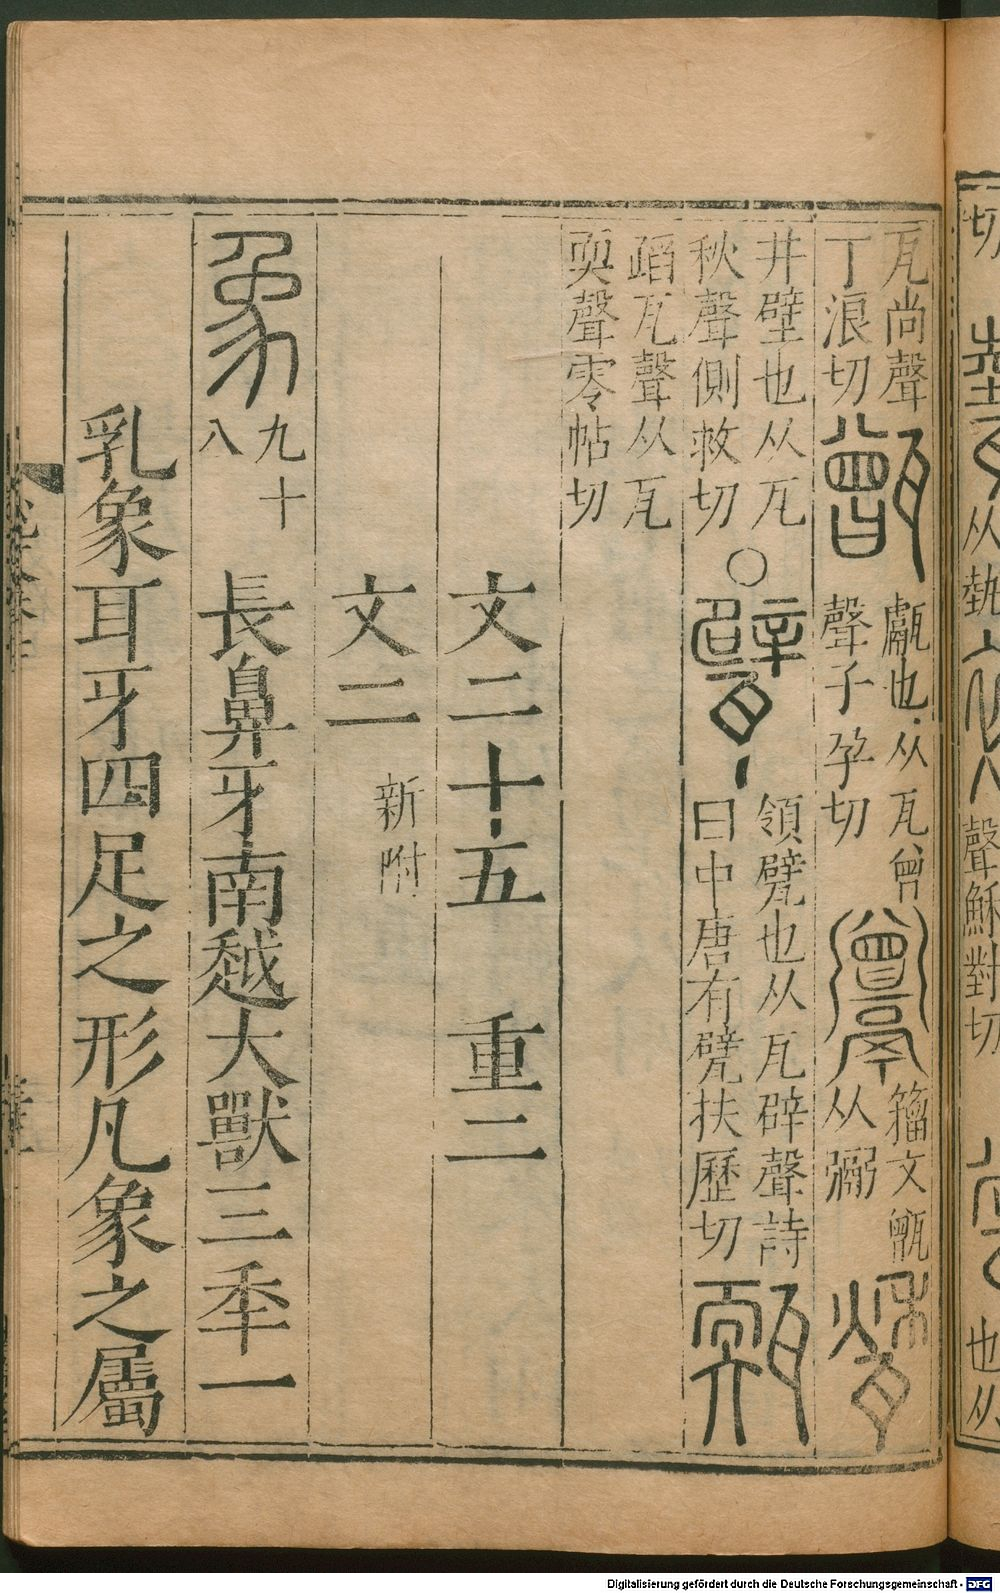 瓦尚聲
丁浪切
甑
甗也从瓦曾
聲子孕切
籀文甑
从䰜
井壁也从瓦
秋聲側救切
○
甓
領甓也从瓦辟聲詩
曰中唐有甓扶歷切
蹈瓦聲从瓦
耎聲零帖切
文二十五 重二
文二 新附
象
九十
八
長鼻牙南越大獸三秊一
乳象耳牙四足之形凡象之屬
切
从
聲穌對切
也从
Digitalisierung gefördert durch die Deutsche Forschungsgemeinschaft - DFG